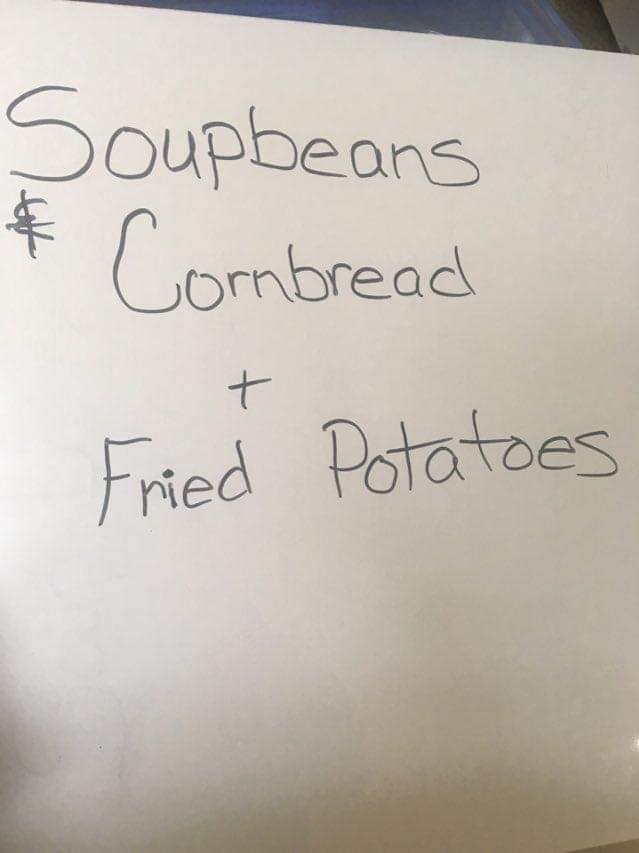 Soupbeans
& Cornbread
+
Fried Potatoes